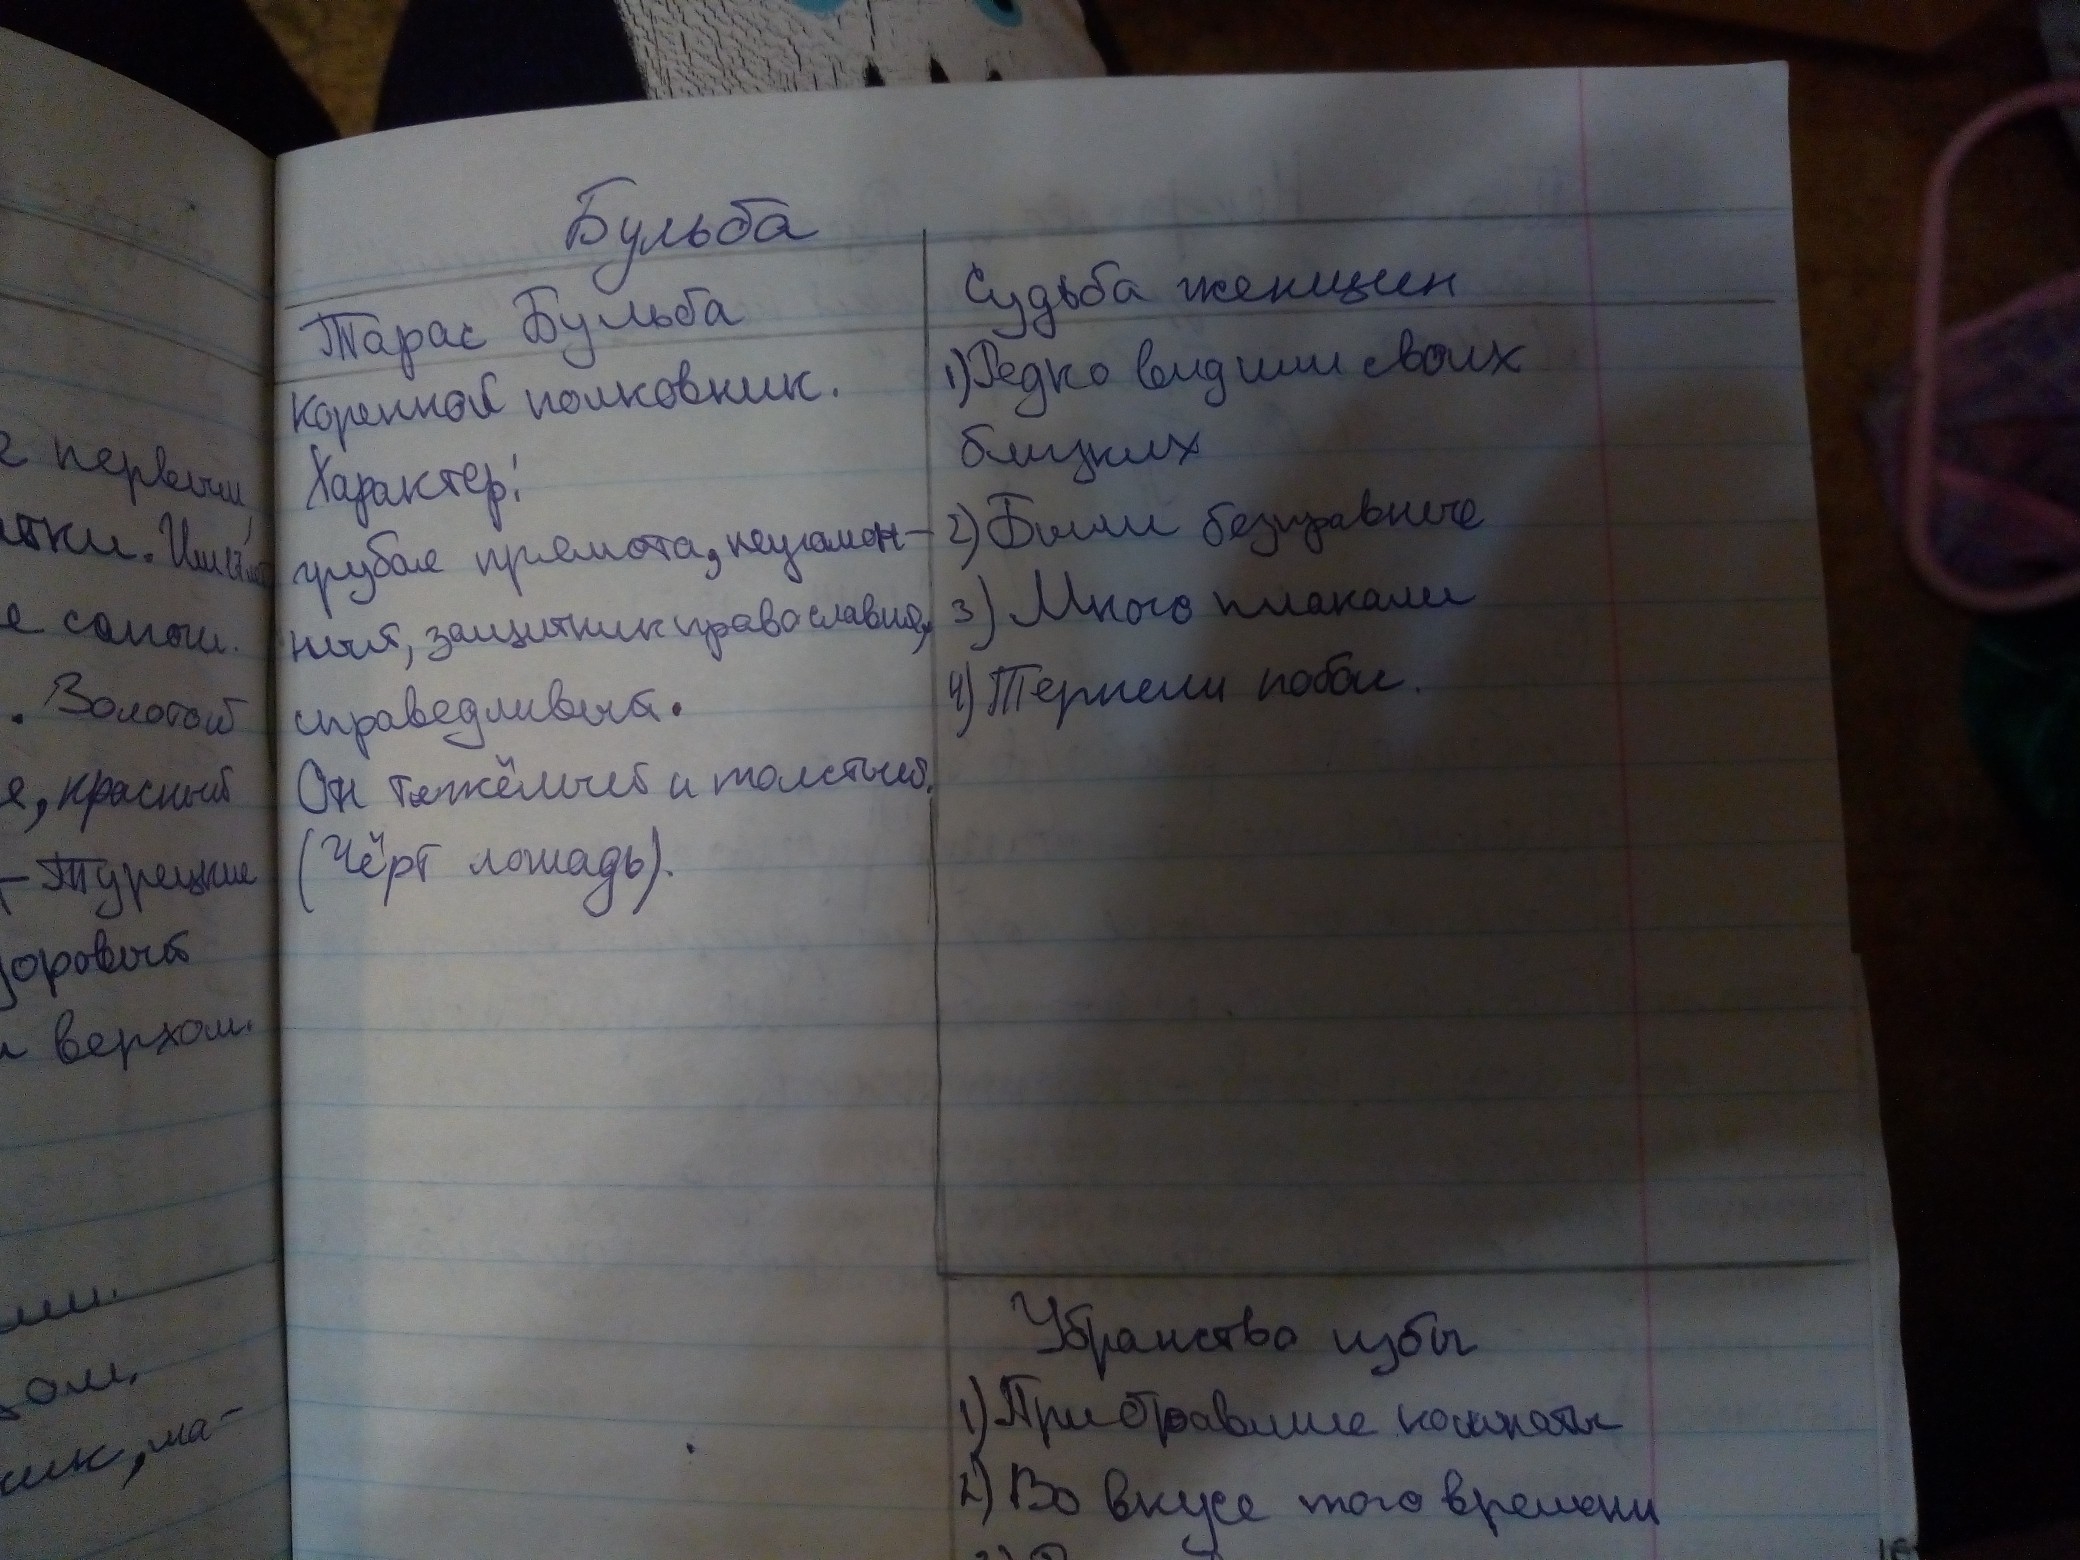 первыми
тки.
самом.
. Золотой
е, красный
- Турецкие
верхом.
ник, ма-
Бульба
Тарас Бульба
коренной полковник.
Характер:
грубая прямота, неугомон-
ный, защитник православия,
справедливый.
Он тяжёлый и толстый.
(Чёрт лошадь).
Судьба женщин
1) Редко видили своих
близких
2) Были безправные
3) Много плакали
4) Терпели побои.
Убранство избы
1) Прибравшие комнаты
2) Во вкусе того времени